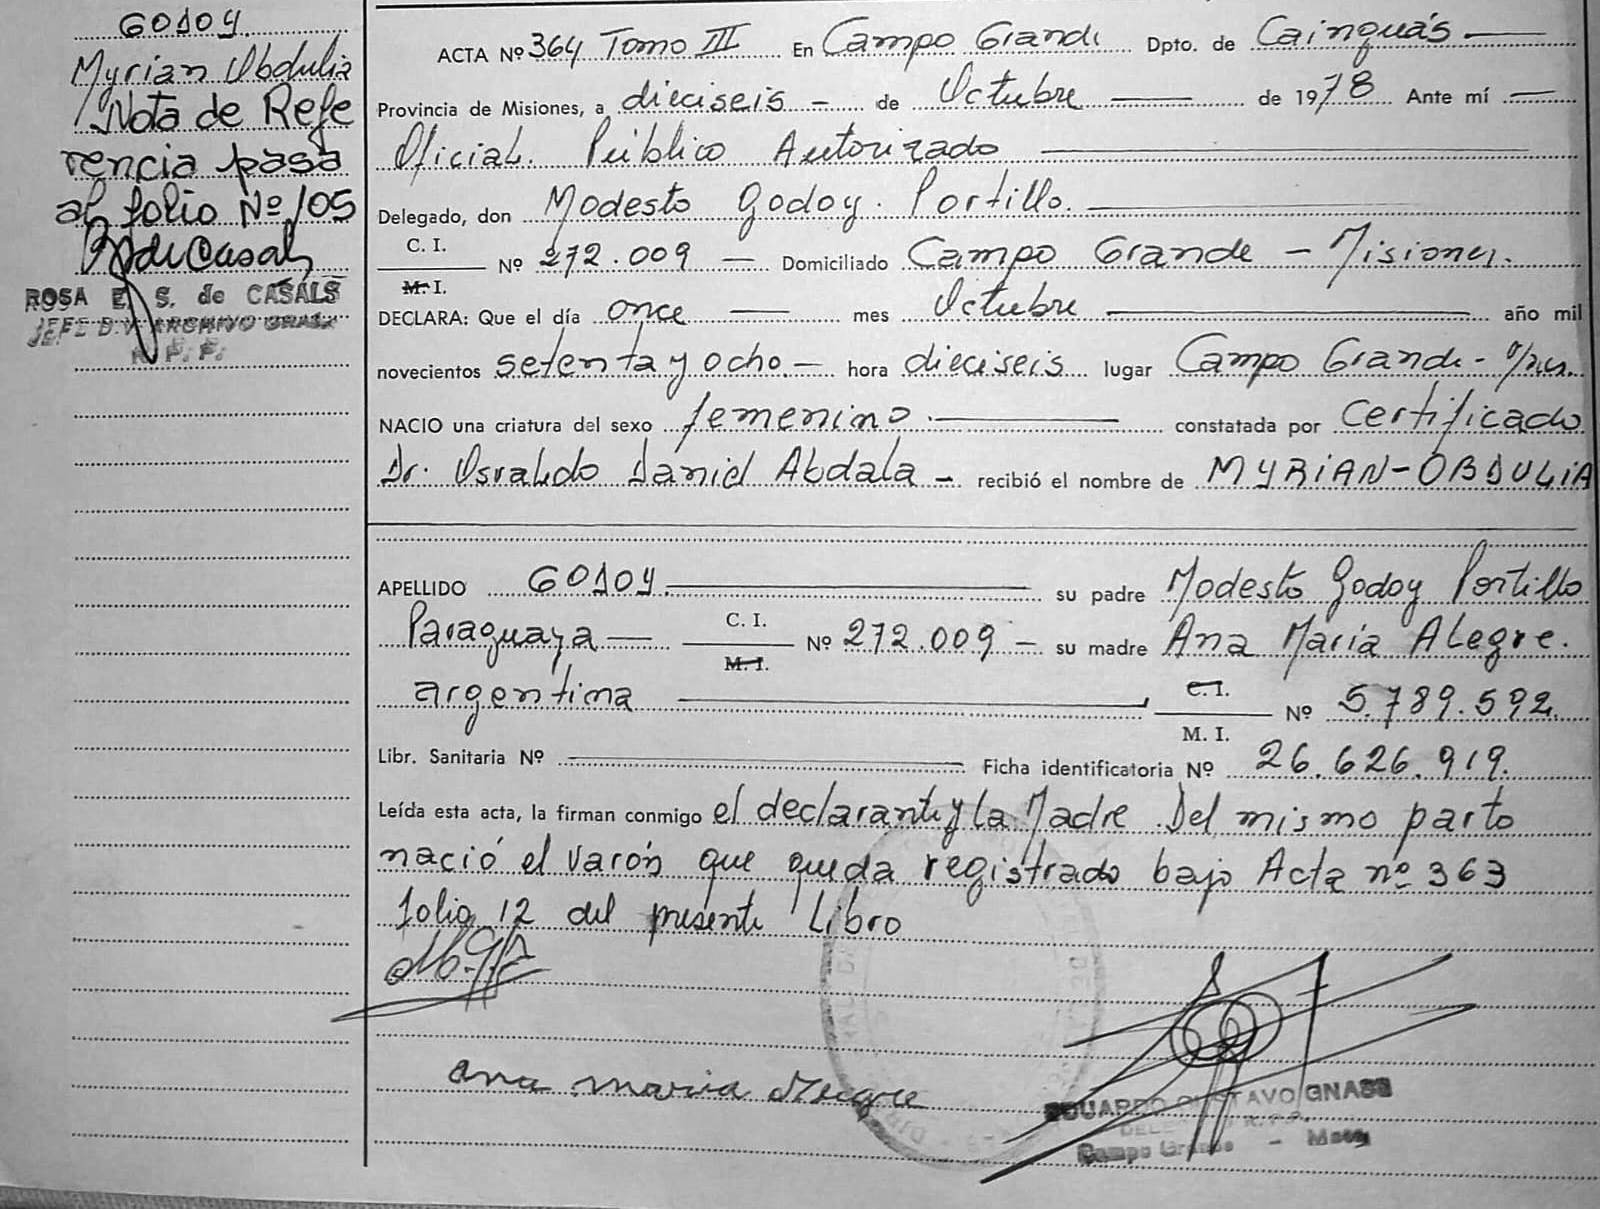 GODOY
Myrian Obdulia
Nota de Refe
rencia pasa
al folio Nº 105
ROSA E. S. de CASALS
JEFE DIV. ARCHIVO GRAL.
R. P. P.
ACTA Nº 364 Tomo III En Campo Grande Dpto. de Cainguás
Provincia de Misiones, a dieciseis de Octubre de 1978 Ante mí
Oficial Público Autorizado
Delegado, don Modesto Godoy Portillo.
C. I.
M. I.
Nº 272.009 Domiciliado Campo Grande - Misiones.
DECLARA: Que el día once mes Octubre año mil
novecientos setenta y ocho.- hora dieciseis lugar Campo Grande - Mnes.
NACIO una criatura del sexo femenino. constatada por Certificado
Dr. Osvaldo Daniel Abdala - recibió el nombre de MYRIAN-OBDULIA
APELLIDO GODOY. su padre Modesto Godoy Portillo
Paraguaya C. I. M. I. Nº 272.009 - su madre Ana María Alegre.
argentina C. I. M. I. Nº 5.789.592
Libr. Sanitaria Nº Ficha identificatoria Nº 26.626.919.
Leída esta acta, la firman conmigo el declarante y la Madre. Del mismo parto
nació el varón que queda registrado bajo Acta nº 363
folio 12 del presente Libro
ana maria Alegre
EDUARDO GUSTAVO GNASS
Campo Grande - Mnes